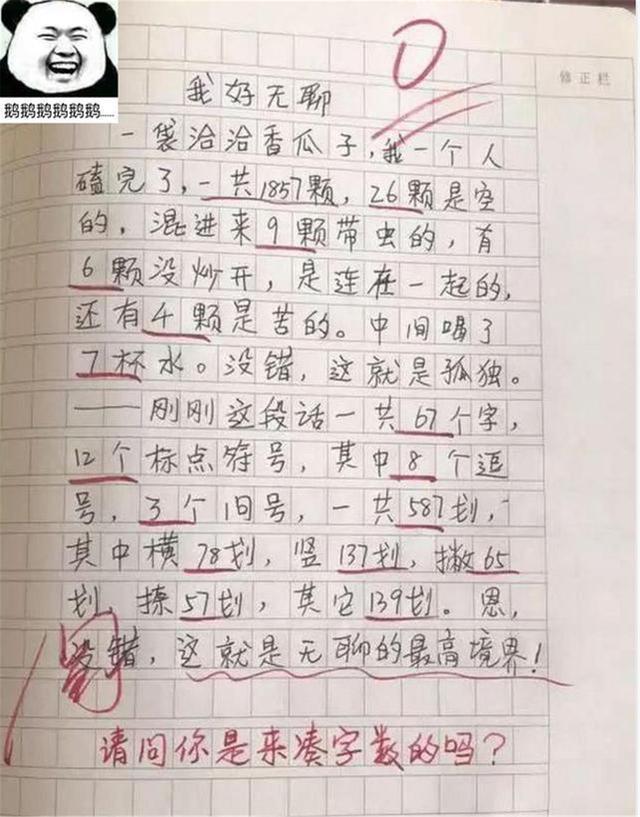 鹅鹅鹅鹅鹅鹅.....
修正栏
0
我好无聊
一袋洽洽香瓜子,我一个人
磕完了,一共1857颗,26颗是空
的,混进来9颗带虫的,有
6颗没炒开,是连在一起的,
还有4颗是苦的。中间喝了
7杯水。没错,这就是孤独。
——刚刚这段话一共67个字,
12个标点符号,其中8个逗
号,3个旧号,一共587划,
其中横78划,竖137划,撇65
划,捺57划,其它139划。恩,
没错,这就是无聊的最高境界!
请问你是来凑字数的吗?